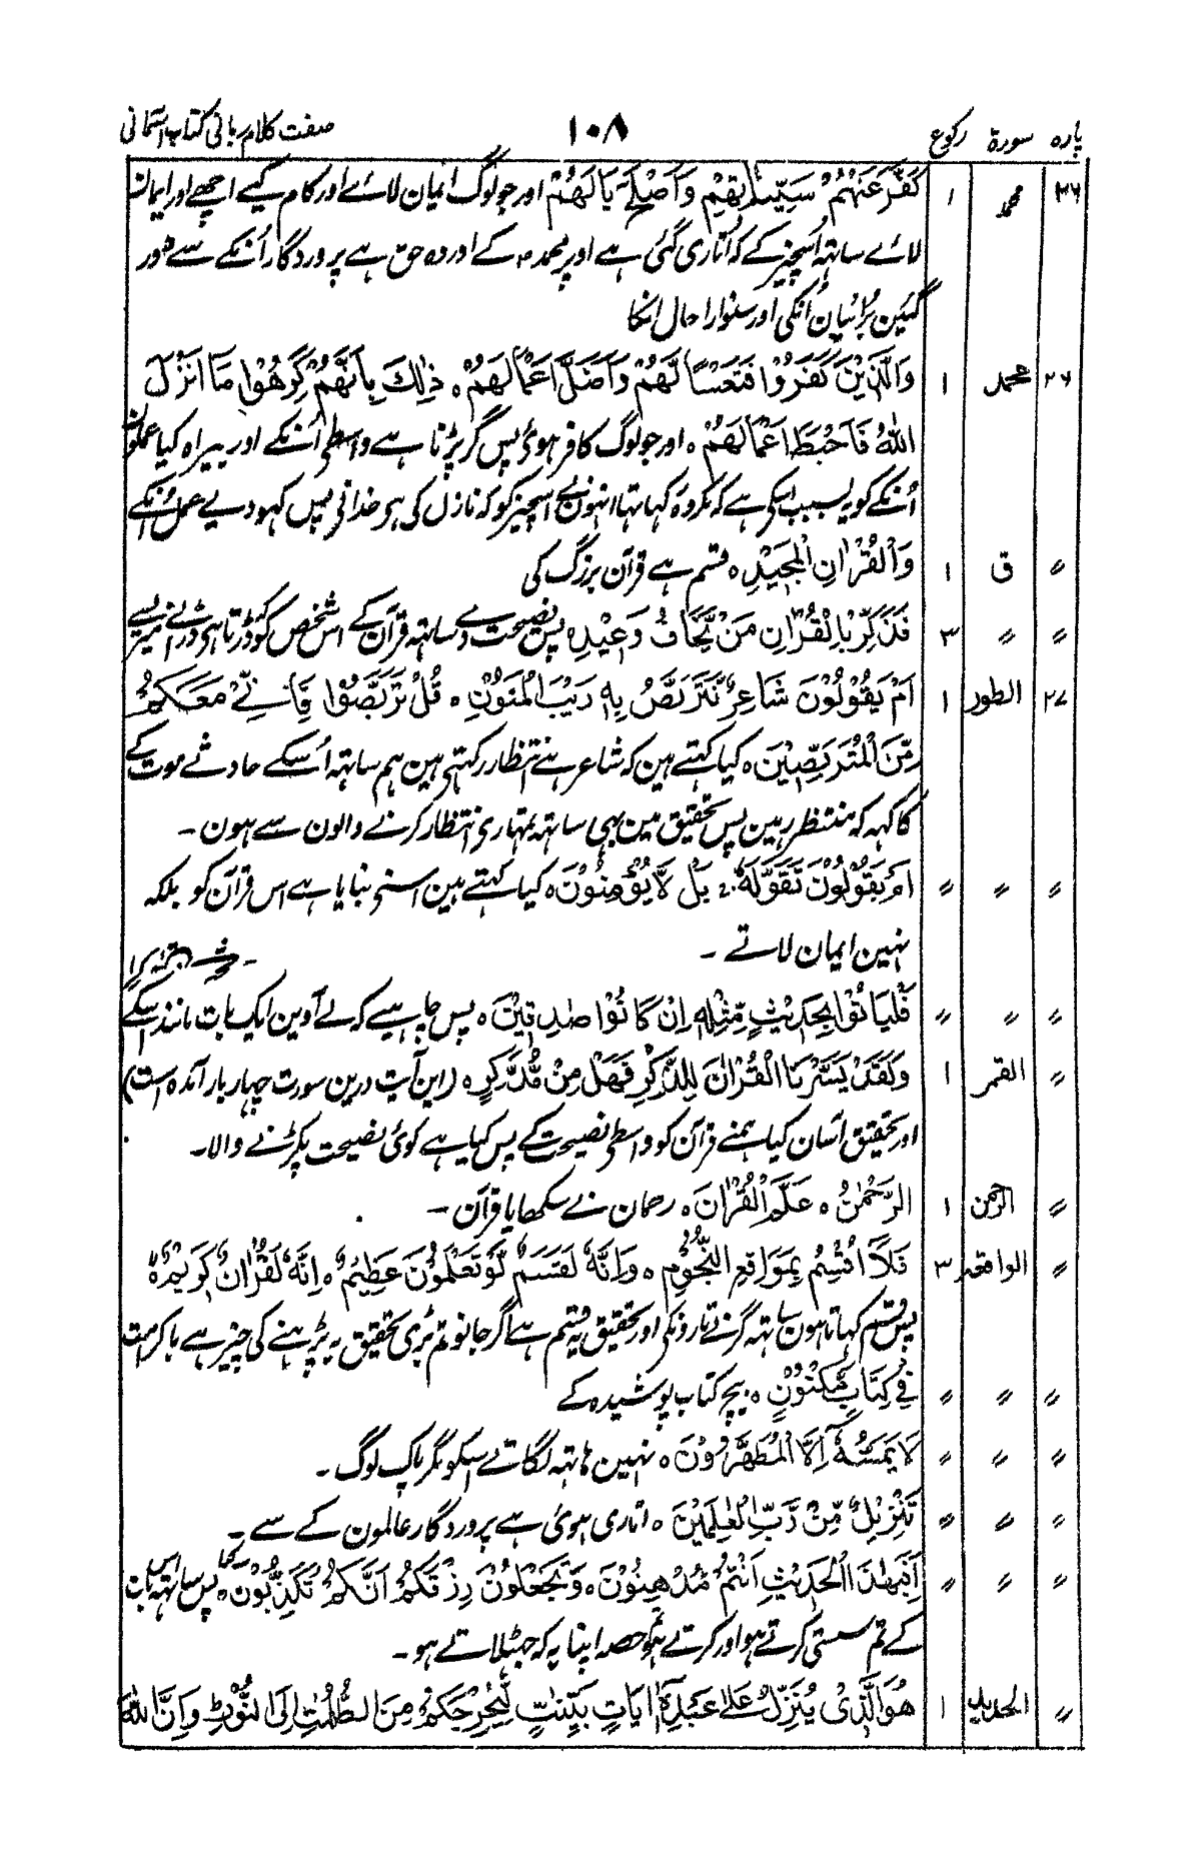 پارہ سورۃ رکوع ١٠٨ صفت کلام ربانی کتاب آسمانی
٢٦ محمد ١ كَفَّرَ عَنْهُمْ سَيِّئٰاتِهِمْ وَاَصْلَحَ بَالَهُمْ اور جو لوگ ایمان لائے اور کام کیے اچھے اور ایمان
لائے ساتھ اُسچیز کے کہ اُتاری گئی ہے اوپر محمد ؐ کے اور وہ حق ہے پروردگار اُنکے سے دور
کیئن بُرائیان اُنکی اور سنوارا حال انکا
٢٦ محمد ١ وَالَّذِيْنَ كَفَرُوْا فَتَعْسًا لَّهُمْ وَاَضَلَّ اَعْمَالَهُمْ ہ ذٰلِكَ بِاَنَّهُمْ كَرِهُوْا مَا اَنْزَلَ
اللّٰهُ فَاَحْبَطَ اَعْمَالَهُمْ ہ اور جو لوگ کافر ہوئ پس گر پڑنا ہے واسطی اُنکے اور بیراہ کیا عملون
اُنکے کو یہ بسبب اسکی ہے کہ مکروہ کہا تہا انہون نے اسچیز کو کہ نازل کی ہر خدا نی پس کہو دیے عمل اُنکے
〃 ق ١ وَالْقُرْاٰنِ الْمَجِيْدِ ہ قسم ہے قرآن بزرگ کی
〃 〃 ٣ فَذَكِّرْ بِالْقُرْاٰنِ مَنْ يَّخَافُ وَعِيْدِ ہ پس نصیحت دے ساتہ قرآن کے اس شخص کو کہ ڈرتا ہو ڈرانے میرے سے
٢٧ الطور ١ اَمْ يَقُوْلُوْنَ شَاعِرٌ نَّتَرَبَّصُ بِهٖ رَيْبَ الْمَنُوْنِ ہ قُلْ تَرَبَّصُوْا فَاِنِّيْ مَعَكُمْ
مِّنَ الْمُتَرَبِّصِيْنَ ہ کیا کہتے ہین کہ شاعر ہے انتظار رکہتی ہین ہم ساتہ اُسکے حادثے موت کے
کا کہہ کہ منتظر رہین پس تحقیق مین بہی ساتہ تمہاری انتظار کرنے والون سے ہون ۔
〃 〃 〃 اَمْ يَقُوْلُوْنَ تَقَوَّلَهٗ ۚ بَلْ لَّا يُؤْمِنُوْنَ ہ کیا کہتے ہین اسنے بنایا ہے اس قرآن کو بلکہ
نہین ایمان لاتے ۔
〃 〃 〃 فَلْيَاتُوْا بِحَدِيْثٍ مِّثْلِهٖ اِنْ كَانُوْا صٰدِقِيْنَ ہ پس چاہیے کہ لے آوین ایک بات مانند اسکے
〃 القمر ١ وَلَقَدْ يَسَّرْنَا الْقُرْاٰنَ لِلذِّكْرِ فَهَلْ مِنْ مُّدَّكِرٍ ہ (این آیت درین سورت چہار بار آمدہ است)
اور تحقیق آسان کیا ہمنے قرآن کو واسطی نصیحت کے پس کیا ہے کوئ نصیحت پکڑنے والا ۔
〃 الرحمن ١ الرَّحْمٰنُ ہ عَلَّمَ الْقُرْاٰنَ ہ رحمان نے سکھایا قرآن ۔
〃 الواقعہ ٣ فَلَآ اُقْسِمُ بِمَوَاقِعِ النُّجُوْمِ ہ وَاِنَّهٗ لَقَسَمٌ لَّوْ تَعْلَمُوْنَ عَظِيْمٌ ہ اِنَّهٗ لَقُرْاٰنٌ كَرِيْمٌ ہ
پس قسم کہاتا ہون ساتہ گرنے تارونکی اور تحقیق یہ قسم ہے اگر جانو تم بڑی تحقیق یہ پڑہنے کی چیز ہے باکرامت
〃 〃 〃 فِيْ كِتَابٍ مَّكْنُوْنٍ ہ بیچ کتاب پوشیدہ کے
〃 〃 〃 لَا يَمَسُّهٗٓ اِلَّا الْمُطَهَّرُوْنَ ہ نہین ہاتہ لگاتے اسکو مگر پاک لوگ ۔
〃 〃 〃 تَنْزِيْلٌ مِّنْ رَّبِّ الْعٰلَمِيْنَ ہ اتاری ہوئ ہے پروردگار عالمون کے سے ۔
〃 〃 〃 اَفَبِهٰذَا الْحَدِيْثِ اَنْتُمْ مُّدْهِنُوْنَ ہ وَتَجْعَلُوْنَ رِزْقَكُمْ اَنَّكُمْ تُكَذِّبُوْنَ ہ کیا پس ساتہ اس بات
کے تم سستی کرتے ہو اور کرتے ہو حصہ اپنا یہ کہ جہٹلاتے ہو ۔
〃 الحدید ١ هُوَ الَّذِيْ يُنَزِّلُ عَلٰى عَبْدِهٖٓ اٰيَاتٍ بَيِّنٰتٍ لِّيُخْرِجَكُمْ مِنَ الظُّلُمٰتِ اِلَى النُّوْرِ وَاِنَّ اللّٰهَ